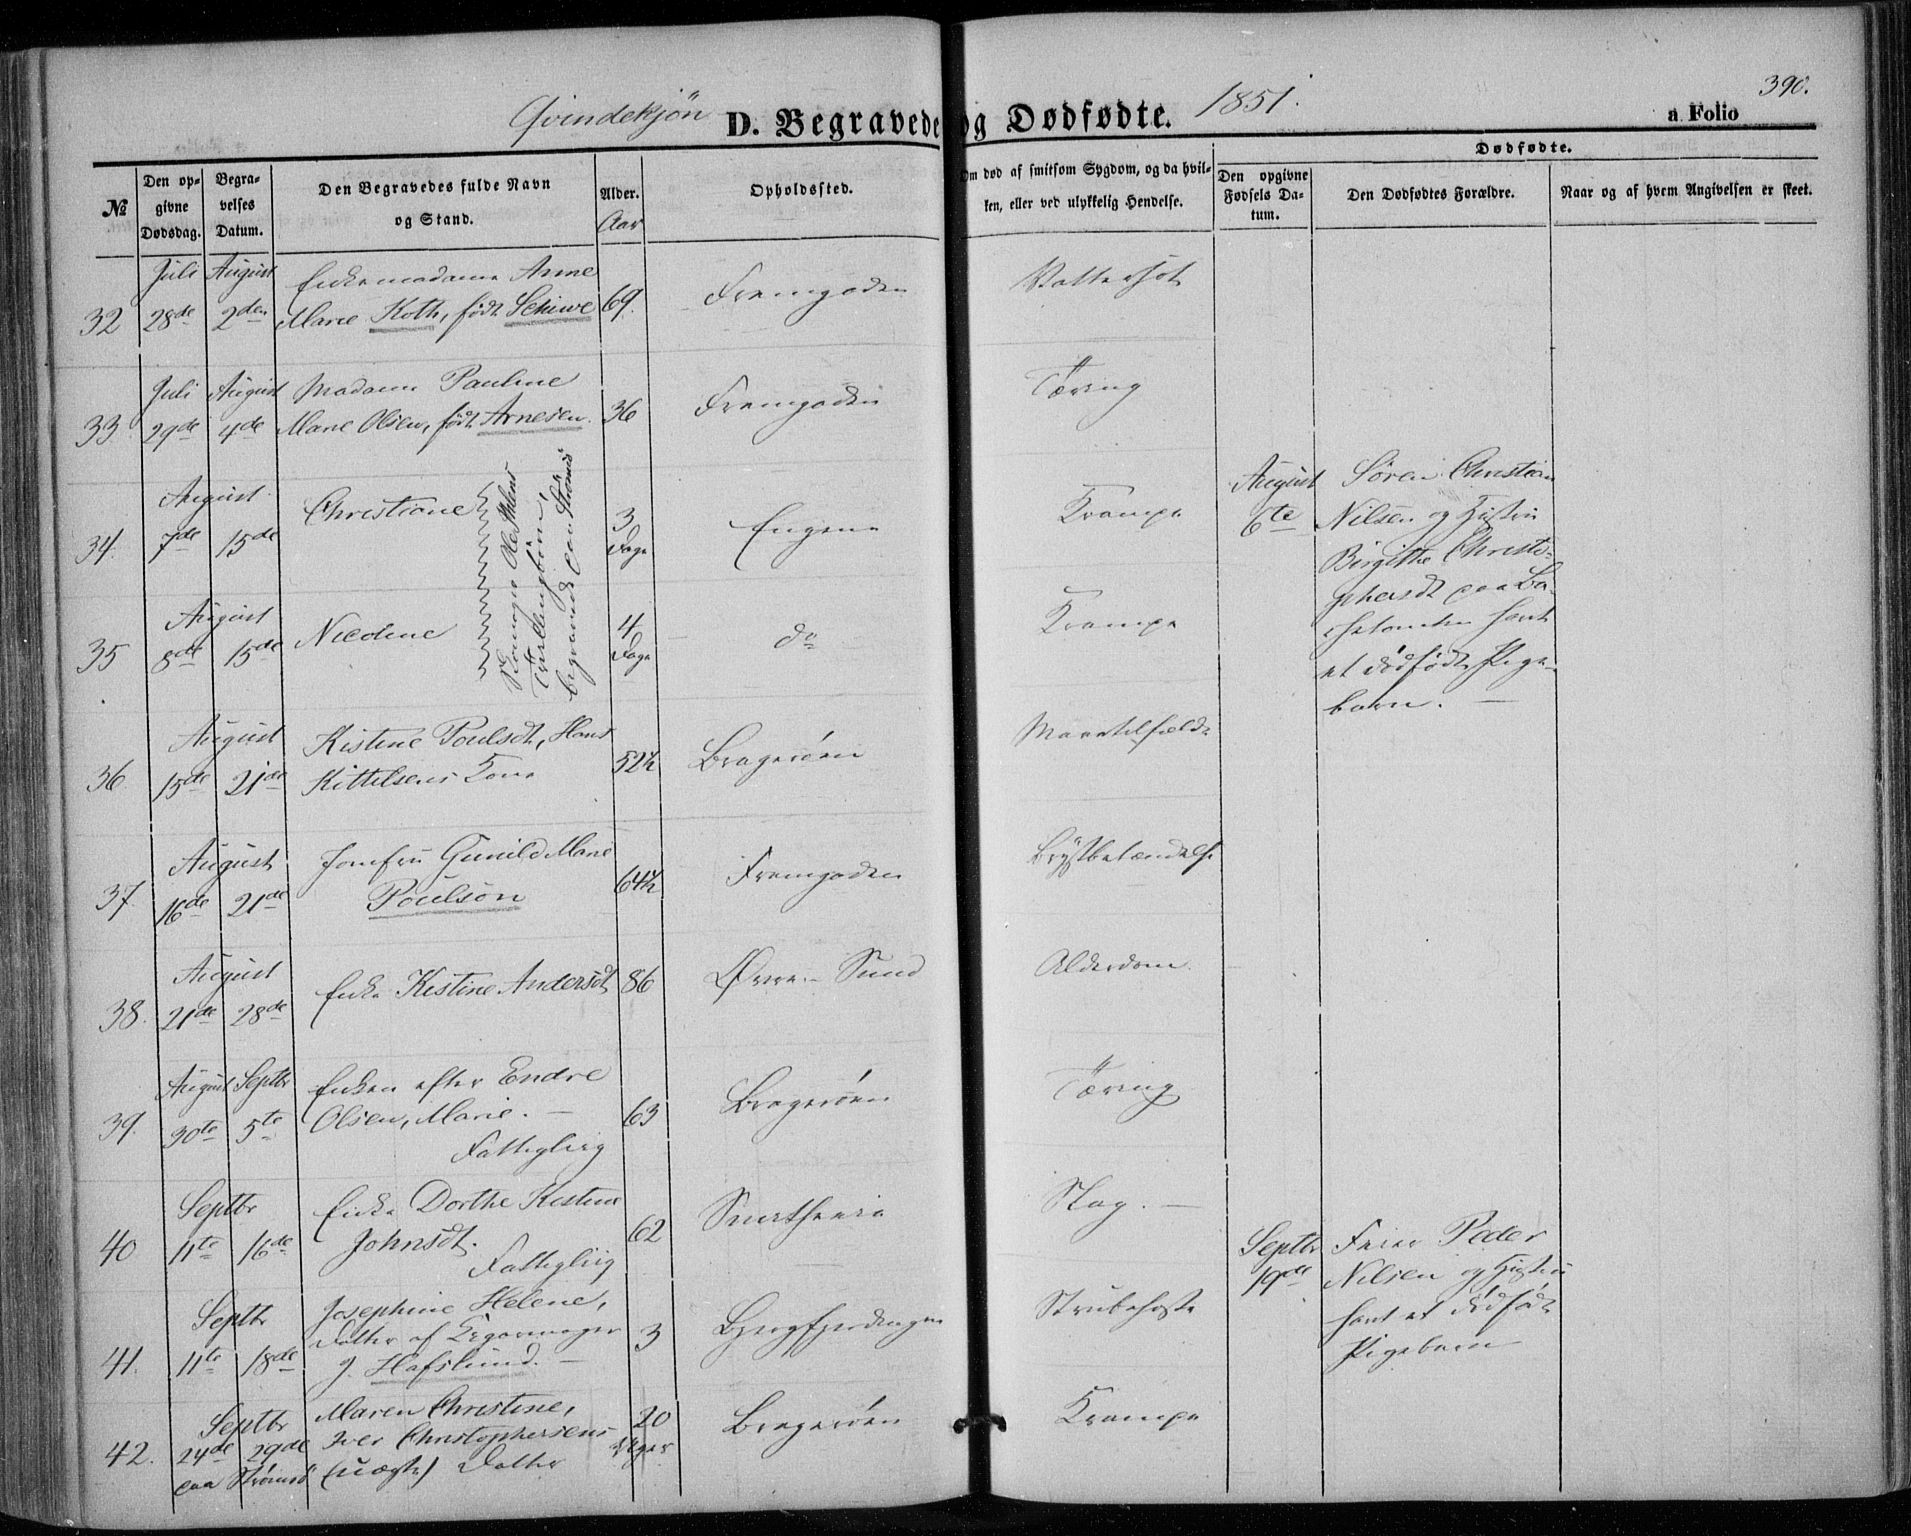 Qvindekjön D. Begravede og Dødfødte. 1851. a Folio 390.
№
Den opgivne Dødsdag.
Begravelses Datum.
Den Begravedes fulde Navn og Stand.
Alder. Aar
Opholdssted.
Om død af smitsom Sygdom, og da hvilken, eller ved ulykkelig Hendelse.
Dødfødte.
Den opgivne Fødsels Datum.
Den Dødfødtes Forældre.
Naar og af hvem Angivelsen er skeet.
32 Juli 28de August 2den Enkemadame Anne
Marie Koth, født Schiwe 69. Fremgaden Vattersot
33 Juli 29de August 4de Madame Pauline
Marie Olsen, født Arnesen. 36 Fremgaden Tæring
34. August 7de 15de Christiane 3 Dage Engene Krampe
35 August 8de 15de Nicoline 4 Dage do Krampe
Tvillingbørn,
begravede paa Strømsø
August 6te Søren Christian
Nilsen og Hustru
Birgithe Christo-
phersdt paa
et dødfødt Pige-
barn.
36. August 15de 21de Kistine Poulsdt, Hans
Kittelsens Kone 52½ Bragerøen Mavetilfælde
37. August 16de 21de Jomfru Gunild Marie
Poulson 64½ Fremgaden Brystbetændelse
38. August 21de 28de Enke Kistine Andersdt 86 Øvre Sund Alderdom.
39. August 30te Septbr 5te Enken efter Endre
Olsen, Marie.
Fattiglig 63 Bragerøen Tæring
40 Septbr 11te 16de Enke Dorthe Kistine
Johnsdt.
Fattiglig 62 Slag.
Septbr 19de Feier Peder
Nilsen og Hustru
havt et dødfødt
Pigebarn
41. Septbr 11te 18de Josephine Helene,
Datter af Cigarmager
J. Hafslund. 3 Bergfjerdingen Strubehoste
42. Septbr 24de 29de Maren Christine,
Iver Christophersens
paa Strømsø (uægte) Datter 20 Uger Bragerøen Krampe